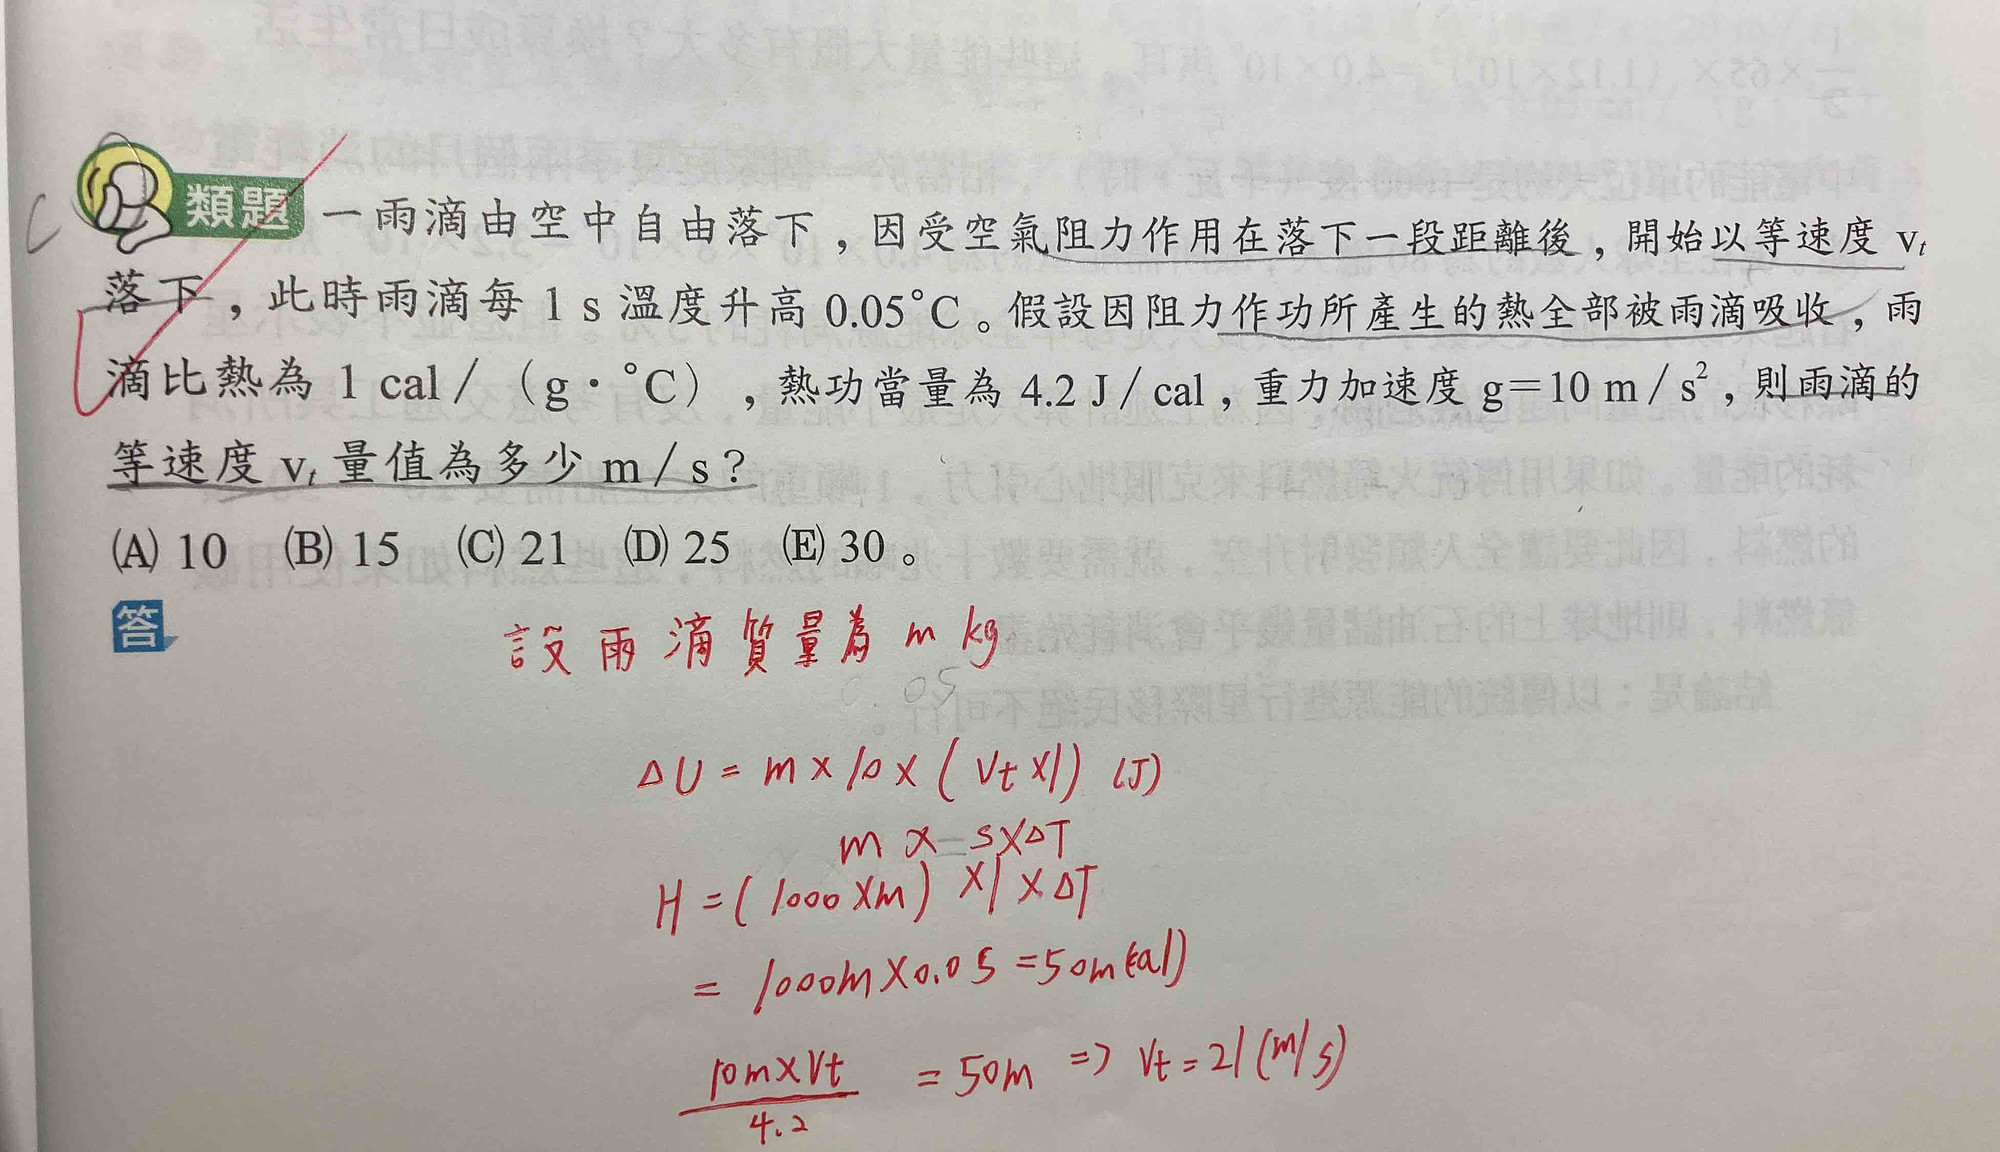 C
類題 一雨滴由空中自由落下，因受空氣阻力作用在落下一段距離後，開始以等速度 vt
落下，此時雨滴每 1 s 溫度升高 0.05°C。假設因阻力作功所產生的熱全部被雨滴吸收，雨
滴比熱為 1 cal／（g・°C），熱功當量為 4.2 J／cal，重力加速度 g＝10 m／s²，則雨滴的
等速度 vt 量值為多少 m／s？
(A) 10 (B) 15 (C) 21 (D) 25 (E) 30。
答
設雨滴質量為 m kg。
0.05
ΔU = m × 10 × ( Vt ×1) (J)
m × s×ΔT
H = ( 1000 ×m ) ×1 ×ΔT
= 1000m ×0.05 = 50m (cal)
10m×Vt / 4.2 = 50m => Vt = 21 (m/s)